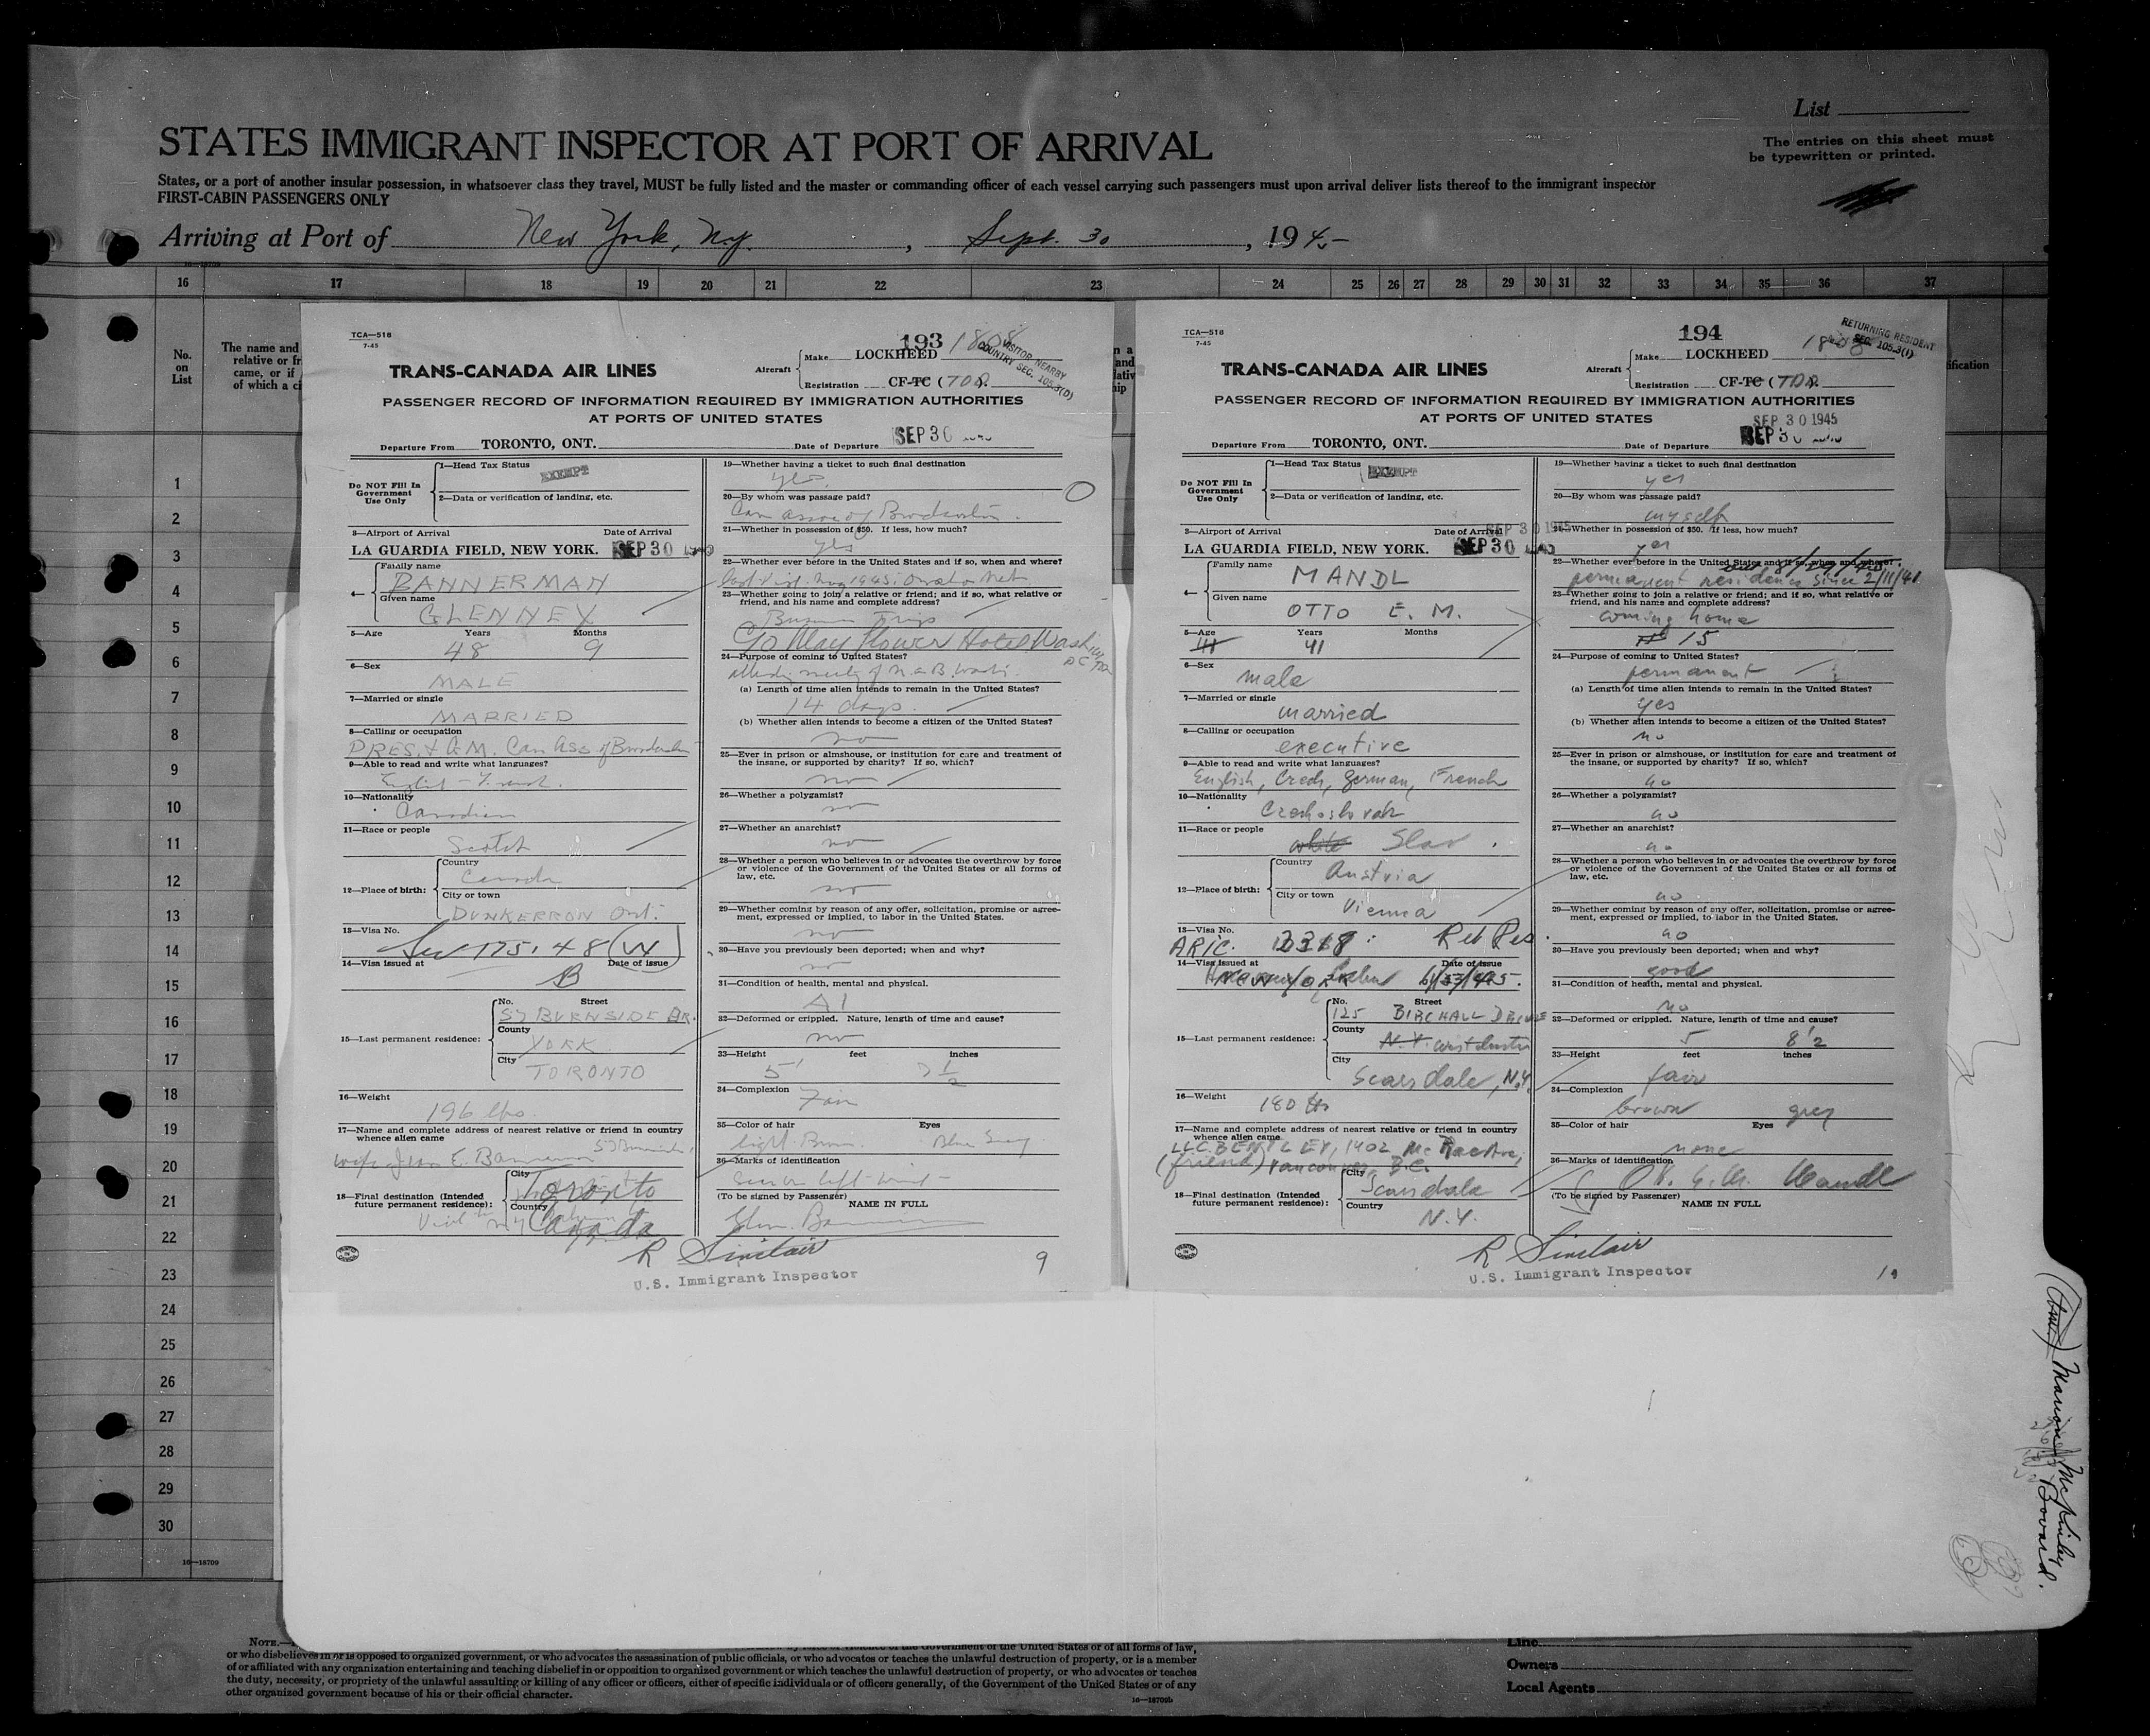 List
The entries on this sheet must
be typewritten or printed.
STATES IMMIGRANT INSPECTOR AT PORT OF ARRIVAL
States, or a port of another insular possession, in whatsoever class they travel, MUST be fully listed and the master or commanding officer of each vessel carrying such passengers must upon arrival deliver lists thereof to the immigrant inspector
FIRST-CABIN PASSENGERS ONLY
Arriving at Port of New York, N.Y., Sept. 30, 1945
16 17 18 19 20 21 22 23 24 25 26 27 28 29 30 31 32 33 34 35 36 37
No.
on
List
The name and
relative or fr
came, or if
of which a ci
1
2
3
4
5
6
7
8
9
10
11
12
13
14
15
16
17
18
19
20
21
22
23
24
25
26
27
28
29
30
16—18709
TCA—518
7-45
193
1808
VISITOR NEARBY
COUNTRY SEC. 105.3(D)
TRANS-CANADA AIR LINES
Aircraft
Make LOCKHEED
Registration CF-TC (TDD.
PASSENGER RECORD OF INFORMATION REQUIRED BY IMMIGRATION AUTHORITIES
AT PORTS OF UNITED STATES
Departure From TORONTO, ONT. Date of Departure SEP 30
Do NOT Fill In
Government
Use Only
1—Head Tax Status EXEMPT
2—Data or verification of landing, etc.
3—Airport of Arrival Date of Arrival
LA GUARDIA FIELD, NEW YORK. SEP 30
4— Family name
BANNERMAN
Given name
GLENNEY
5—Age Years Months
48 9
6—Sex
MALE
7—Married or single
MARRIED
8—Calling or occupation
PRES. & G.M. Can Ass of
9—Able to read and write what languages?
English - French.
10—Nationality
Canadian
11—Race or people
Scotch
12—Place of birth: Country
Canada
City or town
DUNKERRON Ont.
13—Visa No.
Sec 175.48 (W)
14—Visa issued at Date of issue
B
15—Last permanent residence: No. Street
57 BURNSIDE DR.
County
YORK
City
TORONTO
16—Weight
196 lbs.
17—Name and complete address of nearest relative or friend in country
whence alien came
wife Jean E. Bannerman
18—Final destination (Intended
future permanent residence): City
Toronto
Country
Canada
19—Whether having a ticket to such final destination
yes
20—By whom was passage paid?
Can Assoc of
21—Whether in possession of $50. If less, how much?
yes
22—Whether ever before in the United States and if so, when and where?
23—Whether going to join a relative or friend; and if so, what relative or
friend, and his name and complete address?
Business Trip
Go Mayflower Hotel Wash
DC
24—Purpose of coming to United States?
(a) Length of time alien intends to remain in the United States?
14 days.
(b) Whether alien intends to become a citizen of the United States?
no
25—Ever in prison or almshouse, or institution for care and treatment of
the insane, or supported by charity? If so, which?
no
26—Whether a polygamist?
no
27—Whether an anarchist?
no
28—Whether a person who believes in or advocates the overthrow by force
or violence of the Government of the United States or all forms of
law, etc.
no
29—Whether coming by reason of any offer, solicitation, promise or agree-
ment, expressed or implied, to labor in the United States.
no
30—Have you previously been deported; when and why?
no
31—Condition of health, mental and physical.
A1
32—Deformed or crippled. Nature, length of time and cause?
no
33—Height feet inches
5' 7 1/2
34—Complexion
Fair
35—Color of hair Eyes
light Brown Blue Grey
36—Marks of identification
(To be signed by Passenger) NAME IN FULL
R Sinclair
U.S. Immigrant Inspector
9
TCA—518
7-45
194
1808
RETURNING RESIDENT
SEC. 105.3(1)
TRANS-CANADA AIR LINES
Aircraft
Make LOCKHEED
Registration CF-TC (TDD.
PASSENGER RECORD OF INFORMATION REQUIRED BY IMMIGRATION AUTHORITIES
AT PORTS OF UNITED STATES
SEP 30 1945
Departure From TORONTO, ONT. Date of Departure SEP 30
Do NOT Fill In
Government
Use Only
1—Head Tax Status EXEMPT
2—Data or verification of landing, etc.
3—Airport of Arrival Date of Arrival SEP 30 1945
LA GUARDIA FIELD, NEW YORK. SEP 30
4— Family name
MANDL
Given name
OTTO E. M.
5—Age Years Months
41
6—Sex
male
7—Married or single
married
8—Calling or occupation
executive
9—Able to read and write what languages?
English, Czech, German, French
10—Nationality
Czechoslovak
11—Race or people
white Slav.
12—Place of birth: Country
Austria
City or town
Vienna
13—Visa No.
ARIC. Ret Res.
14—Visa issued at Date of issue
NEW YORK
15—Last permanent residence: No. Street
125 BIRCHALL DRIVE
County
N.Y. Westchester
City
Scarsdale, N.Y.
16—Weight
180 lbs
17—Name and complete address of nearest relative or friend in country
whence alien came
L.C. BENTLEY, 1402 McRae Ave,
(friend) Vancouver, B.C.
18—Final destination (Intended
future permanent residence): City
Scarsdale
Country
N.Y.
19—Whether having a ticket to such final destination
yes
20—By whom was passage paid?
myself
21—Whether in possession of $50. If less, how much?
yes
22—Whether ever before in the United States and if so, when and where?
permanent residence since 2/11/41
23—Whether going to join a relative or friend; and if so, what relative or
friend, and his name and complete address?
coming home
# 15
24—Purpose of coming to United States?
permanent
(a) Length of time alien intends to remain in the United States?
yes
(b) Whether alien intends to become a citizen of the United States?
no
25—Ever in prison or almshouse, or institution for care and treatment of
the insane, or supported by charity? If so, which?
no
26—Whether a polygamist?
no
27—Whether an anarchist?
no
28—Whether a person who believes in or advocates the overthrow by force
or violence of the Government of the United States or all forms of
law, etc.
no
29—Whether coming by reason of any offer, solicitation, promise or agree-
ment, expressed or implied, to labor in the United States.
no
30—Have you previously been deported; when and why?
good
31—Condition of health, mental and physical.
no
32—Deformed or crippled. Nature, length of time and cause?
5 8 1/2
33—Height feet inches
fair
34—Complexion
brown grey
35—Color of hair Eyes
none
36—Marks of identification
Mandl
(To be signed by Passenger) NAME IN FULL
R Sinclair
U.S. Immigrant Inspector
Marion McKinley Bovard.
or who disbelieves in or is opposed to organized government, or who advocates the assassination of public officials, or who advocates or teaches the unlawful destruction of property, or is a member
of or affiliated with any organization entertaining and teaching disbelief in or opposition to organized government or which teaches the unlawful destruction of property, or who advocates or teaches
the duty, necessity, or propriety of the unlawful assaulting or killing of any officer or officers, either of specific individuals or of officers generally, of the Government of the United States or of any
other organized government because of his or their official character.
16—18709b
Line
Owners
Local Agents